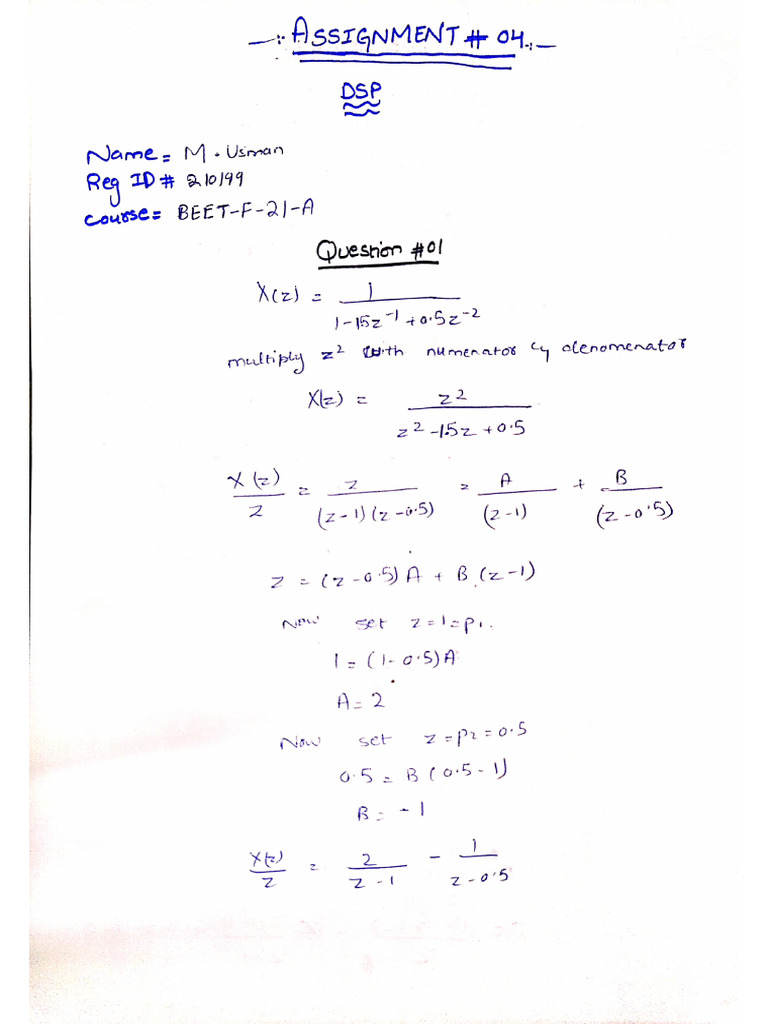 —:ASSIGNMENT # 04.:—
DSP
Name = M. Usman
Reg ID # 210199
Course = BEET-F-21-A
Question #01
X(z) = 1 / 1-15z^-1 +0.5z^-2
multiply z^2 with numenator & denomenator
X(z) = z^2 / z^2 -1.5z +0.5
X(z)/z = z / (z-1)(z-0.5) = A / (z-1) + B / (z-0.5)
z = (z-0.5)A + B(z-1)
Now set z=1=p1.
1 = (1-0.5)A
A = 2
Now set z=p2=0.5
0.5 = B(0.5-1)
B = -1
X(z)/z = 2 / z-1 - 1 / z-0.5